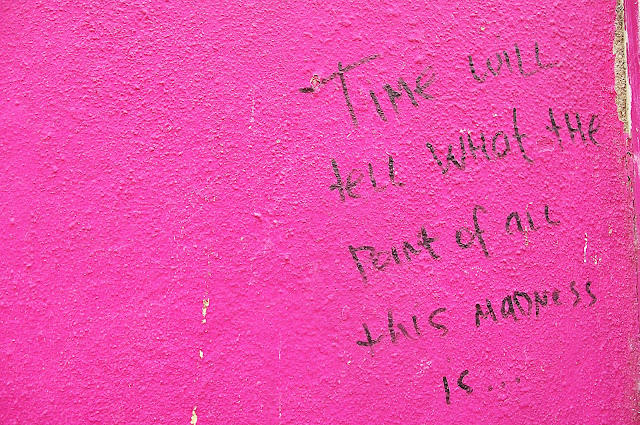 TIME WILL
tell WHat tHE
Point of all
this MaDNess
is...